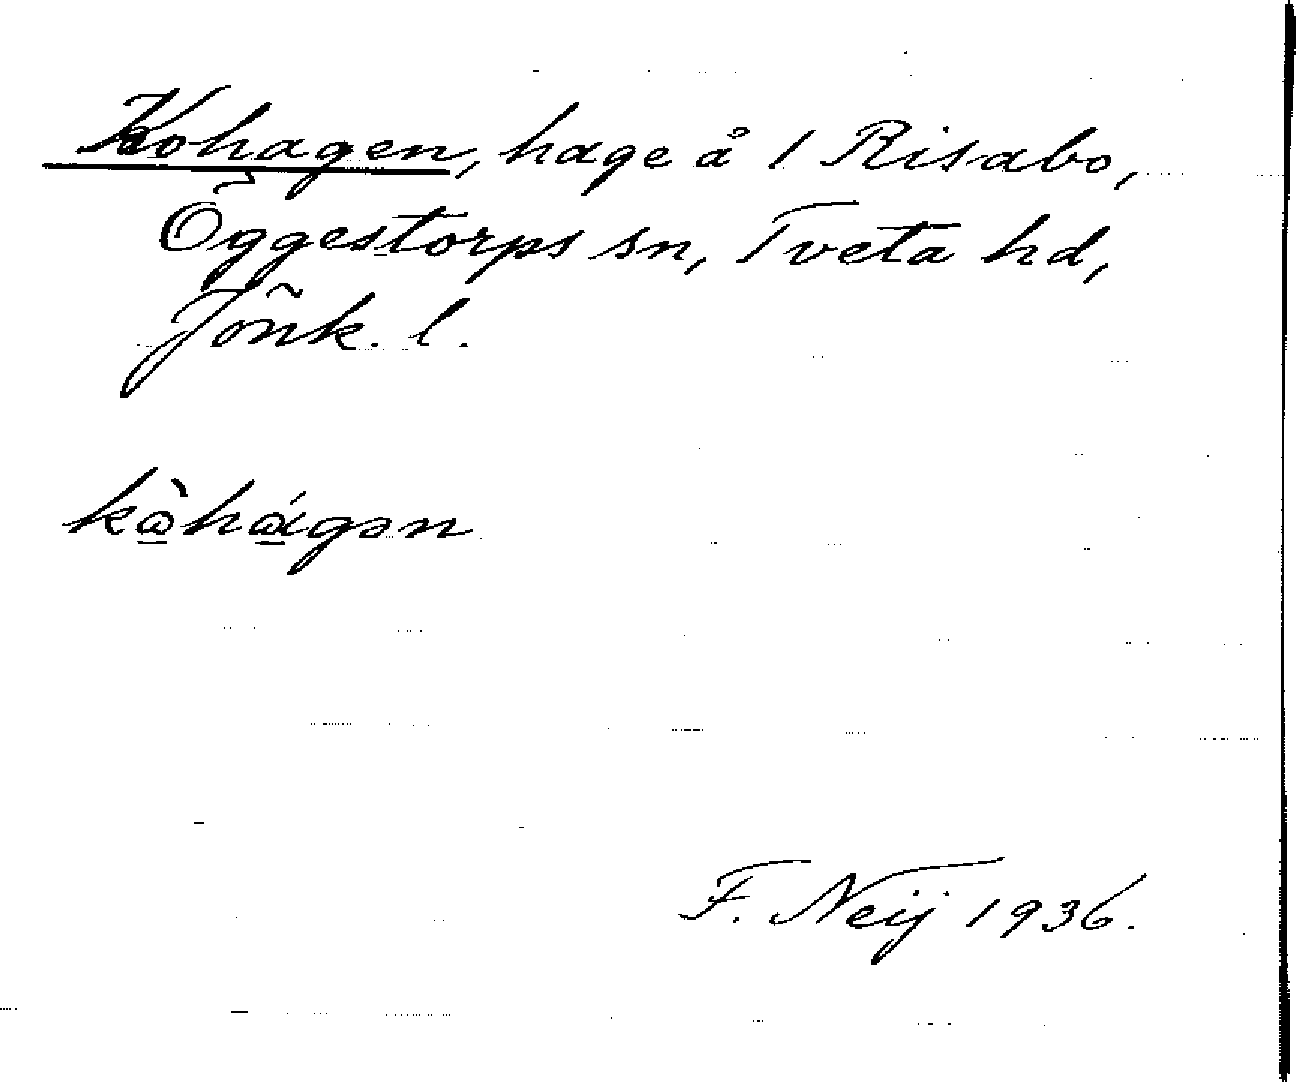 Kohagen, hage å 1 Risabo,
Öggestorps sn, Tveta hd,
Jönk. l.
F. Neij 1936.